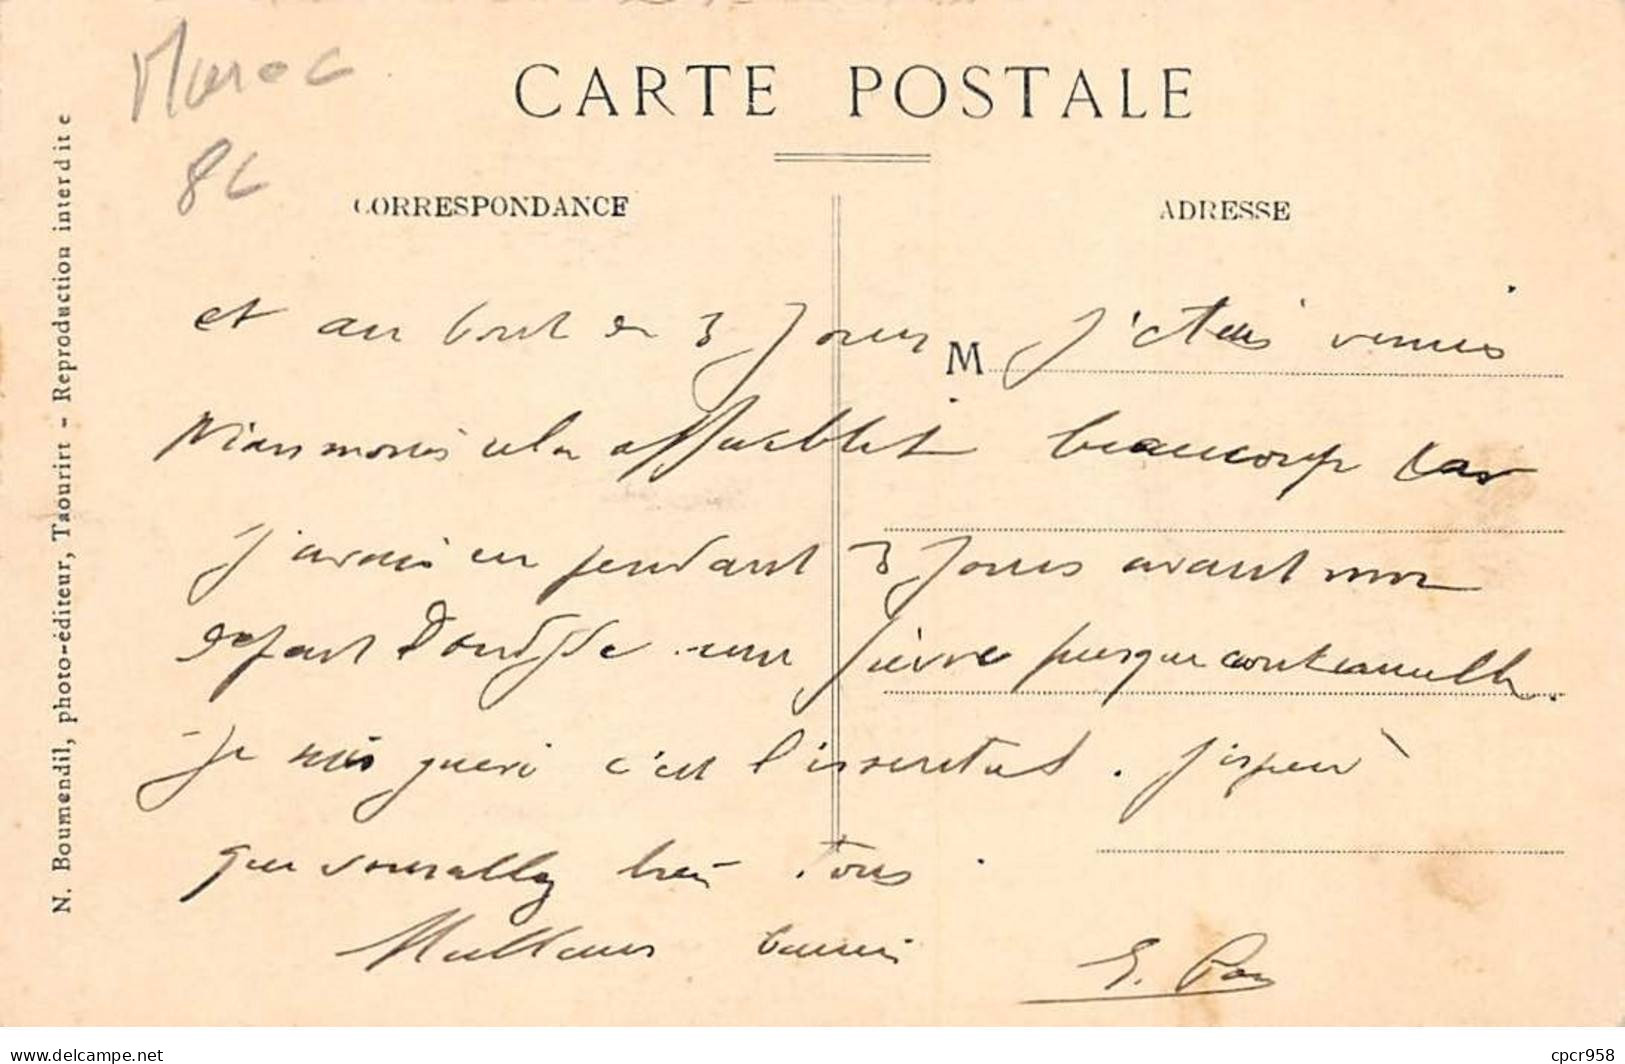 Maroc
86
CARTE POSTALE
CORRESPONDANCE
ADRESSE
N. Boumendil, photo-éditeur, Taourirt - Reproduction interdite
et au bout de 3 jours j'étais remis
M
néanmoins cela affaiblit beaucoup car
j'avais eu pendant 3 jours avant mon
départ d'Oudjda une fièvre presque continuelle.
Je suis guéri c'est l'essentiel. J'espère
que vous allez bien tous.
Meilleurs baisers
E.
cpcr958